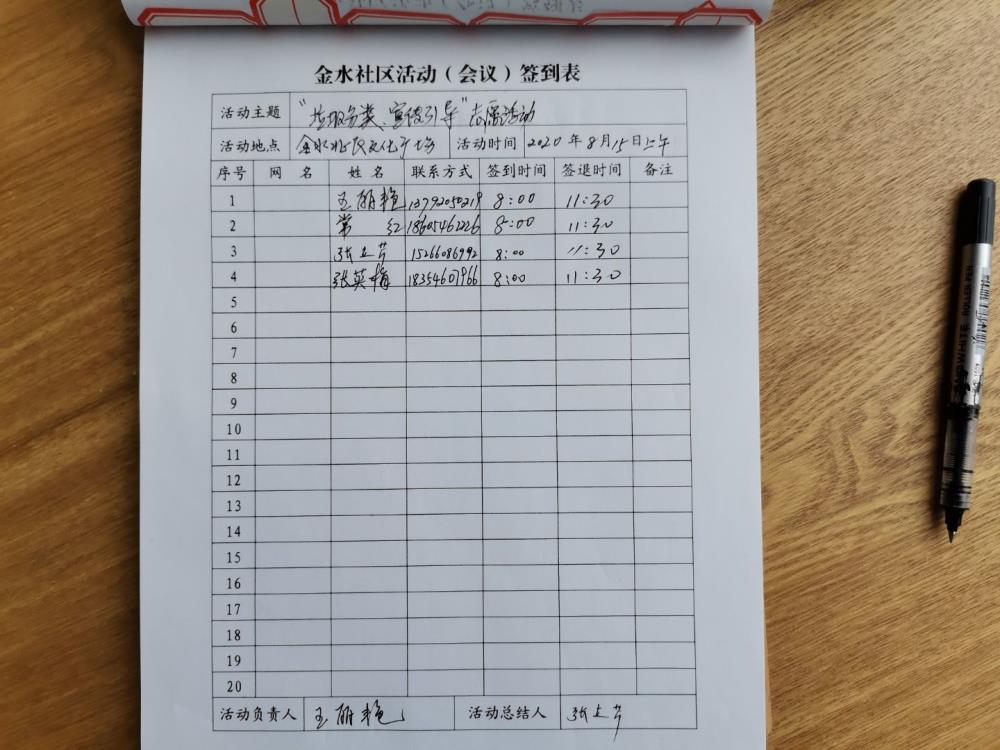 金水社区活动（会议）签到表
活动主题 "垃圾分类、宣传引导"志愿活动
活动地点 金水社区文化广场 活动时间 2020年8月15日上午
序号 网 名 姓 名 联系方式 签到时间 签退时间 备注
1 王丽艳 13792050219 8:00 11:30
2 常 红 18605462226 8:00 11:30
3 张立芹 15266086992 8:00 11:30
4 张英梅 18354607966 8:00 11:30
5
6
7
8
9
10
11
12
13
14
15
16
17
18
19
20
活动负责人 王丽艳 活动总结人 张立芹